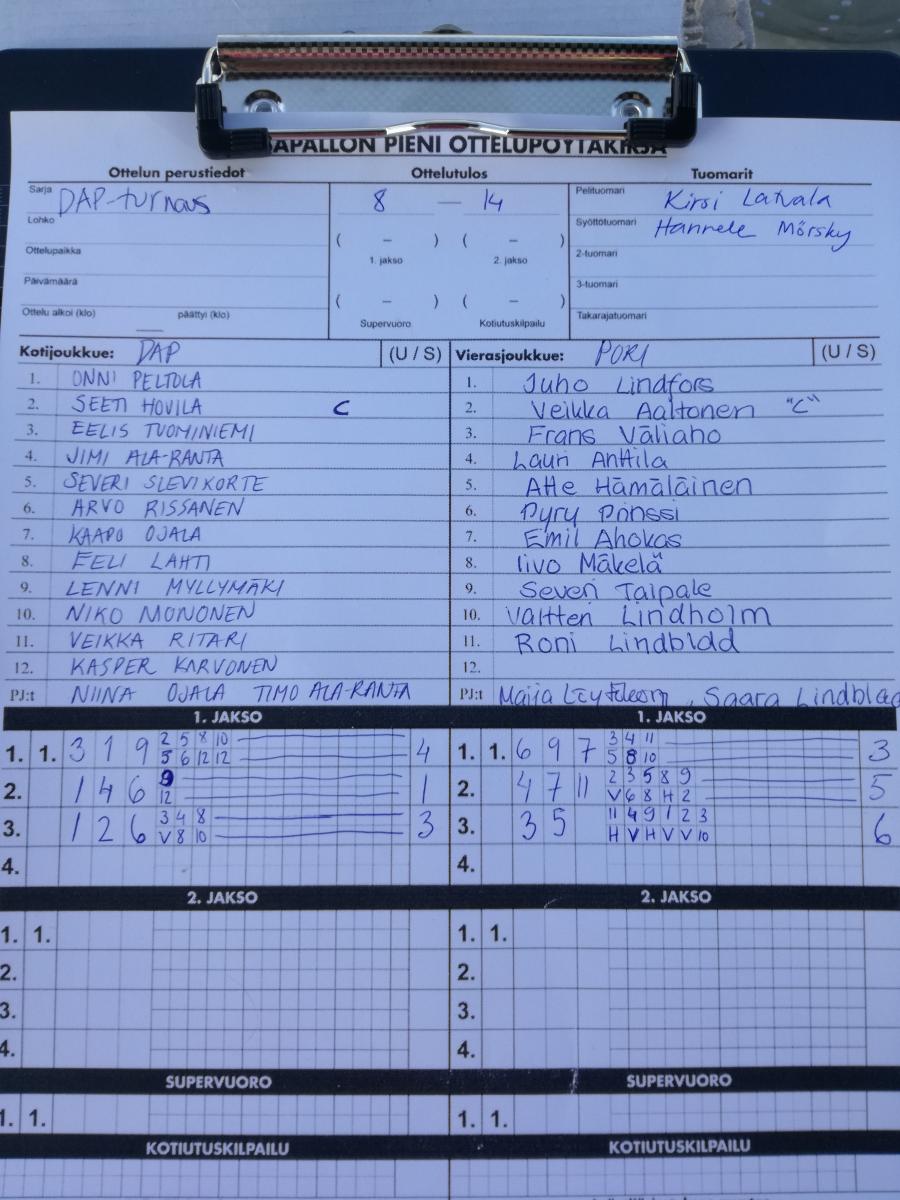 PALLON PIENI OTTELUPÖYTÄKIRJA
Ottelun perustiedot Ottelutulos Tuomarit
Sarja DAP-turnaus 8 — 14 Pelituomari Kirsi Latvala
Lohko Syöttötuomari Hannele Mörsky
Ottelupaikka ( – ) ( – ) 2-tuomari
1. jakso 2. jakso
Päivämäärä 3-tuomari
( – ) ( – )
Ottelu alkoi (klo) päättyi (klo) Supervuoro Kotiutuskilpailu Takarajatuomari
Kotijoukkue: DAP (U / S) Vierasjoukkue: PORI (U / S)
1. ONNI PELTOLA 1. Juho Lindfors
2. SEETI HOVILA C 2. Veikka Aaltonen "C"
3. EELIS TUOMINIEMI 3. Frans Väliaho
4. JIMI ALA-RANTA 4. Lauri Anttila
5. SEVERI SLEVIKORTE 5. Atte Hämäläinen
6. ARVO RISSANEN 6. Pyry Prinssi
7. KAAPO OJALA 7. Emil Ahokas
8. EELI LAHTI 8. Iivo Mäkelä
9. LENNI MYLLYMÄKI 9. Severi Taipale
10. NIKO MONONEN 10. Valtteri Lindholm
11. VEIKKA RITARI 11. Roni Lindblad
12. KASPER KARVONEN 12.
PJ:t NIINA OJALA TIMO ALA-RANTA PJ:t Maija , Saara Lindblad
1. JAKSO 1. JAKSO
2 5 8 10 3 4 11
1. 1. 3 1 9 5 6 12 12 4 1. 1. 6 9 7 5 8 10 3
9 2 3 5 8 9
2. 1 4 6 12 1 2. 4 7 11 V 6 8 H 2 5
3 4 8 11 4 9 1 2 3
3. 1 2 6 V 8 10 3 3. 3 5 H V H V V 10 6
4. 4.
2. JAKSO 2. JAKSO
1. 1. 1. 1.
2. 2.
3. 3.
4. 4.
SUPERVUORO SUPERVUORO
1. 1. 1. 1.
KOTIUTUSKILPAILU KOTIUTUSKILPAILU